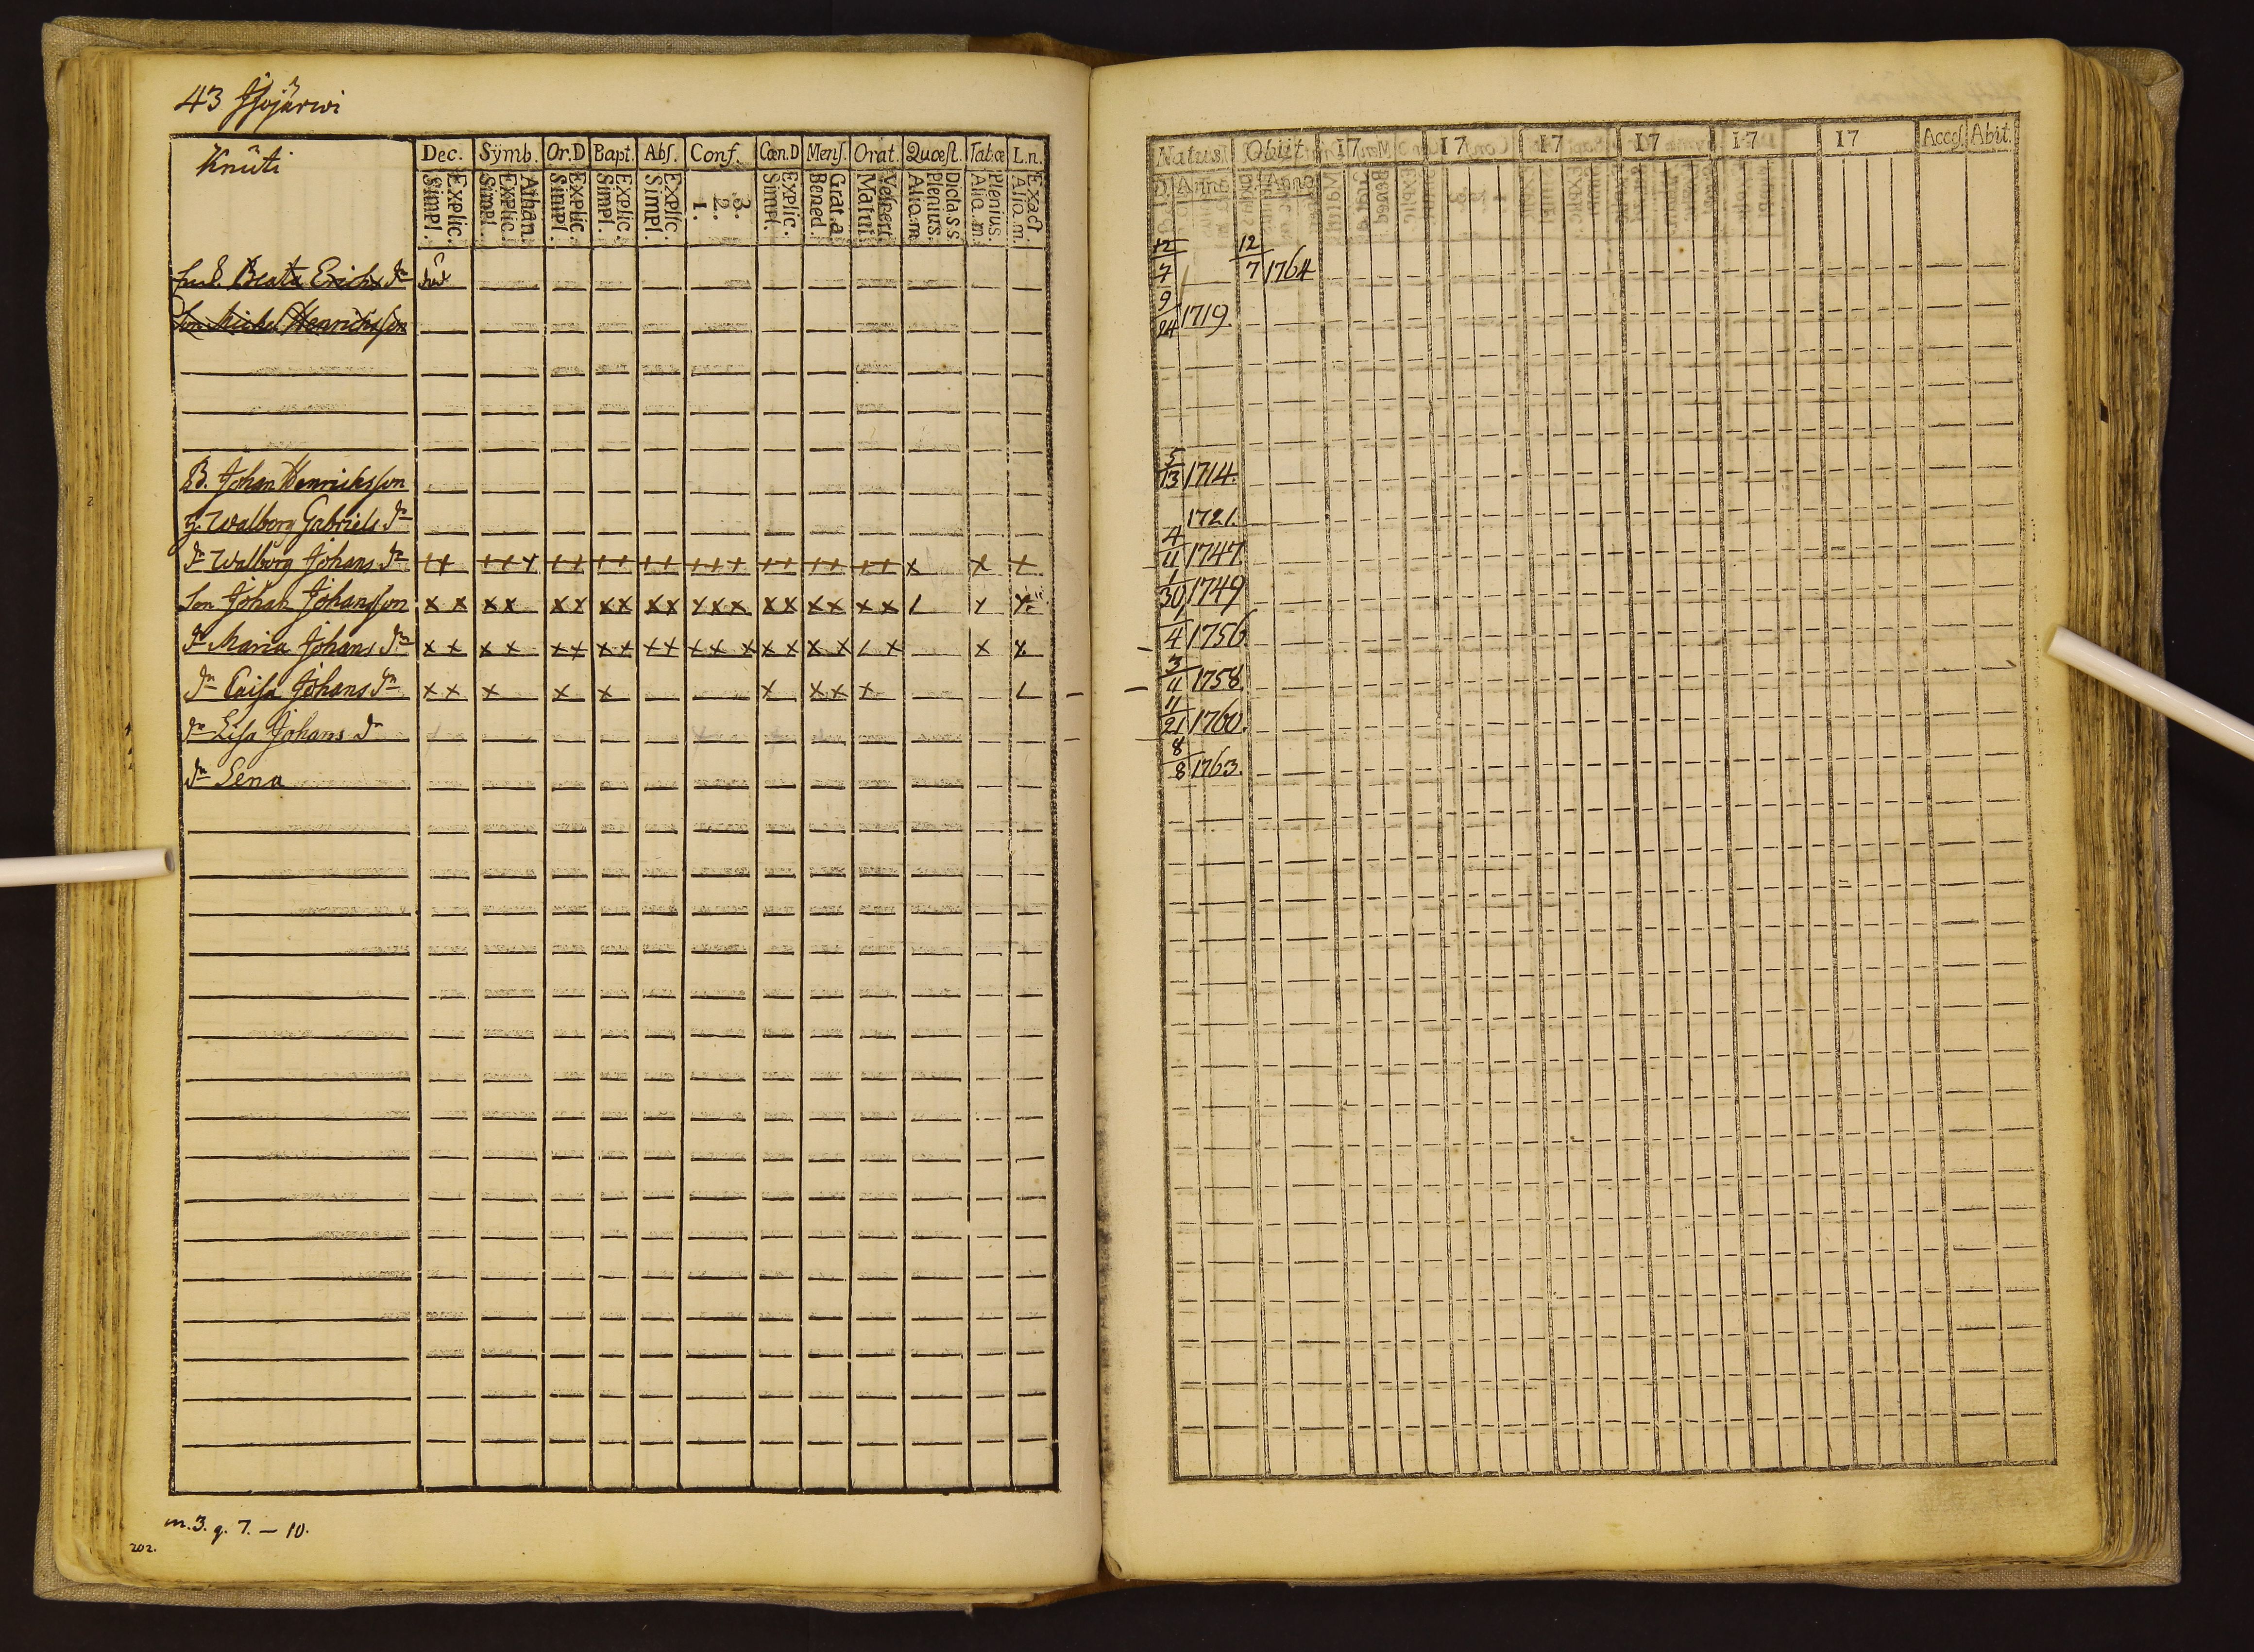 43 Isojärwi
Knuti
Dec. Sÿmb. Or.D Bapt. Abſ. Conf. Cœn.D Menſ. Orat. Quœſt. Tab.œ L.n.
Simpl. Explic. Simpl. Explic. Athan. Simpl. Explic. Simpl. Explic. Simpl. Explic. 1. 2. 3. Simpl. Explic. Bened. Grat.a Matut. Veſpert. Aliq.m Plenius. Dicta S.S. Aliq.m Plenius. Aliq.m Exact
Beata Erichs dr
Son Michel Henrichsson
B. Johan Henrichsson
H. Walborg Gabriels dr
dr Walborg Johans dr ++ +++ ++ ++ ++ +++ ++ ++ ++ x x x
Son Johan Johansson x x x x x x x x x x x x x x x x x x x
dr Maria Johans dr x x x x x x x x x x x x x x x x x
dr Caisa Johans dr x x x x x x x x x
dr Lisa Johans dr
dr Lena
m. 3. q. 7. – 10.
202.
Natus Obiit 17 17 17 17 17 17 Acceſ Abit.
D. Anno Anno
12/7 12/7 1764
9/24 1719.
5/13 1714.
1721.
4/11 1747
1/30 1749
1/4 1756
3/11 1758.
11/21 1760.
8/8 1763.